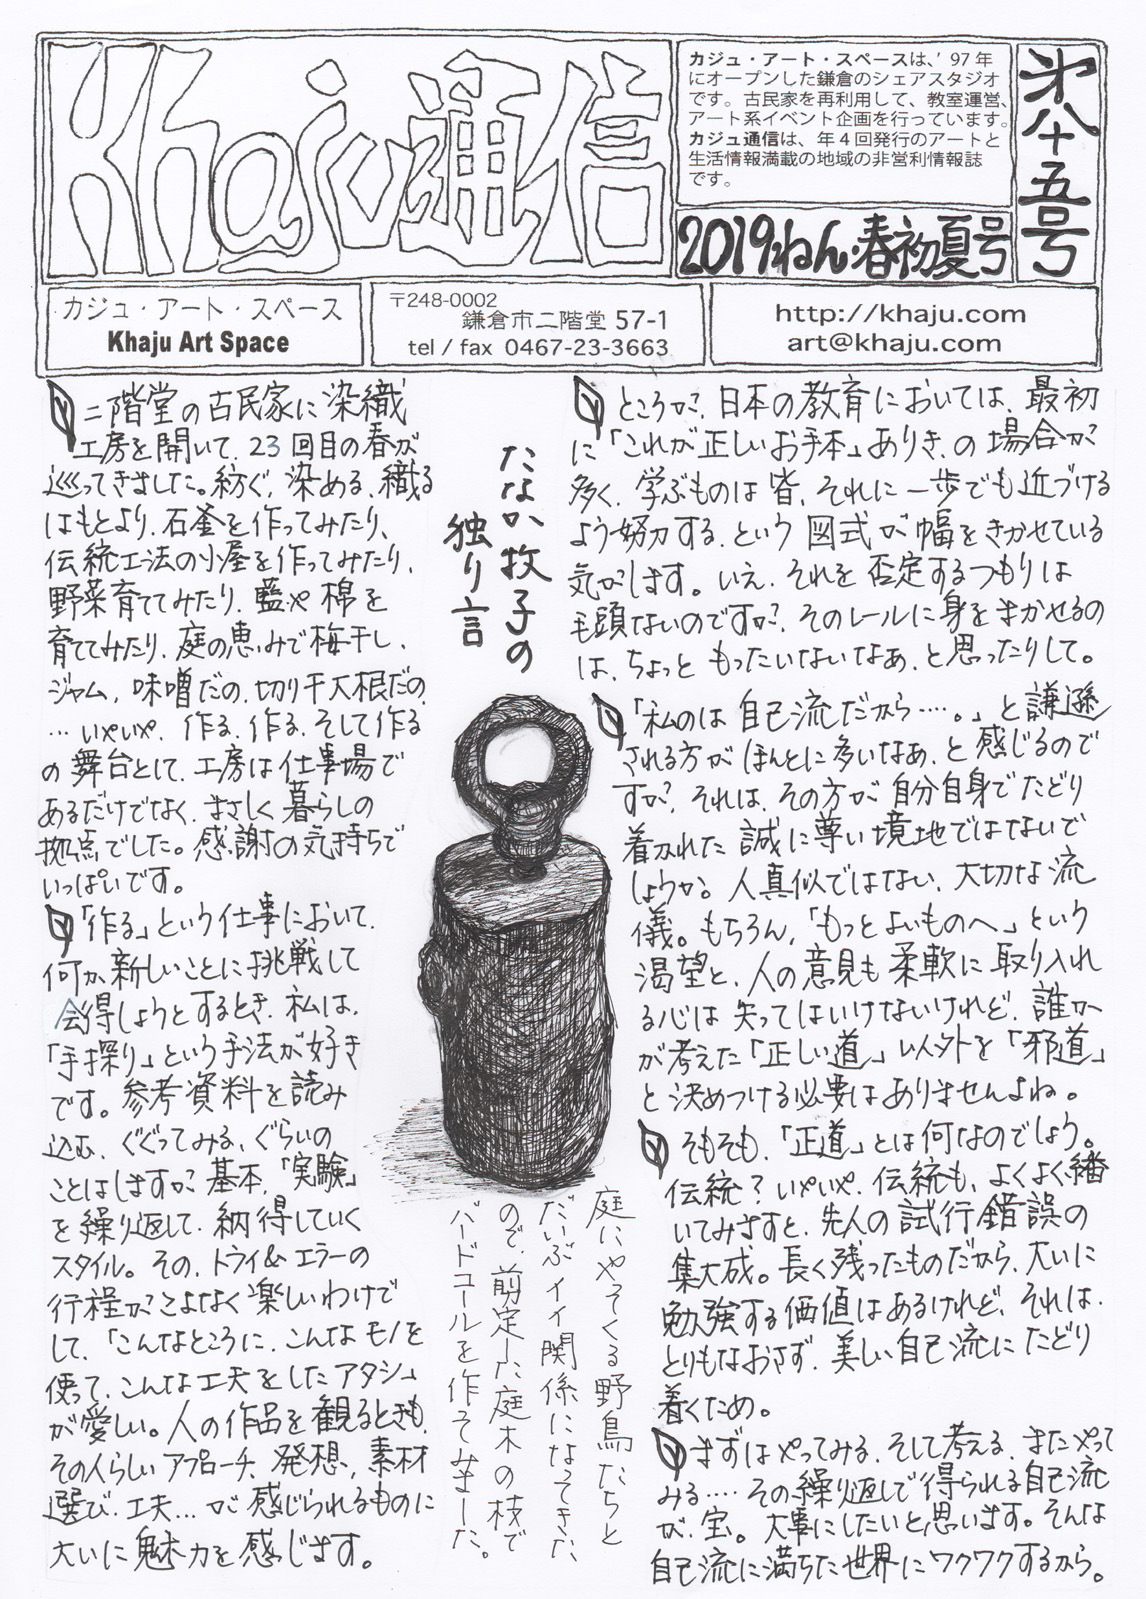 Khaju通信
カジュ・アート・スペースは、'97年
にオープンした鎌倉のシェアスタジオ
です。古民家を再利用して、教室運営、
アート系イベント企画を行っています。
カジュ通信は、年4回発行のアートと
生活情報満載の地域の非営利情報誌
です。
2019ねん・春初夏号
第八十五号
カジュ・アート・スペース
Khaju Art Space
〒248-0002
鎌倉市二階堂 57-1
tel / fax 0467-23-3663
http://khaju.com
art@khaju.com
たなか牧子の
独り言
二階堂の古民家に染織
工房を開いて、23回目の春が
巡ってきました。紡ぐ、染める、織る
はもとより、石釜を作ってみたり、
伝統工法の小屋を作ってみたり、
野菜育ててみたり、藍や棉を
育ててみたり、庭の恵みで梅干し、
ジャム、味噌だの、切り干大根だの
…いやいや、作る、作る、そして作る
の舞台として、工房は仕事場で
あるだけでなく、まさしく暮らしの
拠点でした。感謝の気持ちで
いっぱいです。
「作る」という仕事において、
何か新しいことに挑戦して
会得しようとするとき、私は、
「手探り」という手法が好き
です。参考資料を読み
込む、ぐぐってみる、ぐらいの
ことはしますが、基本、「実験」
を繰り返して、納得していく
スタイル。その、トライ&エラーの
行程がこよなく楽しいわけで
して、「こんなところに、こんなモノを
使って、こんな工夫をしたアタシ」
が愛しい。人の作品を観るときも、
その人らしいアプローチ、発想、素材
選び、工夫…が感じられるものに
大いに魅力を感じます。
庭にやってくる野鳥たちと
だいぶイイ関係になってきた
ので、剪定した庭木の枝で
バードコールを作ってみました。
ところが、日本の教育においては、最初
に「これが正しいお手本」ありき、の場合が
多く、学ぶものは皆、それに一歩でも近づける
よう努力する、という図式が幅をきかせている
気がします。いえ、それを否定するつもりは
毛頭ないのですが、そのレールに身をまかせるの
は、ちょっともったいないなぁ、と思ったりして。
「私のは自己流だから…。」と謙遜
される方がほんとに多いなぁ、と感じるので
すが、それは、その方が自分自身でたどり
着かれた誠に尊い境地ではないで
しょうか。人真似ではない、大切な流
儀。もちろん、「もっとよいものへ」という
渇望と、人の意見も柔軟に取り入れ
る心は失ってはいけないけれど、誰か
が考えた「正しい道」以外を「邪道」
と決めつける必要はありませんよね。
そもそも、「正道」とは何なのでしょう。
伝統?いやいや、伝統も、よくよく繙
いてみますと、先人の試行錯誤の
集大成。長く残ったものだから、大いに
勉強する価値はあるけれど、それは、
とりもなおさず、美しい自己流にたどり
着くため。
まずはやってみる、そして考える、またやって
みる…。その繰り返しで得られる自己流
が、宝。大事にしたいと思います。そんな
自己流に満ちた世界にワクワクするから。